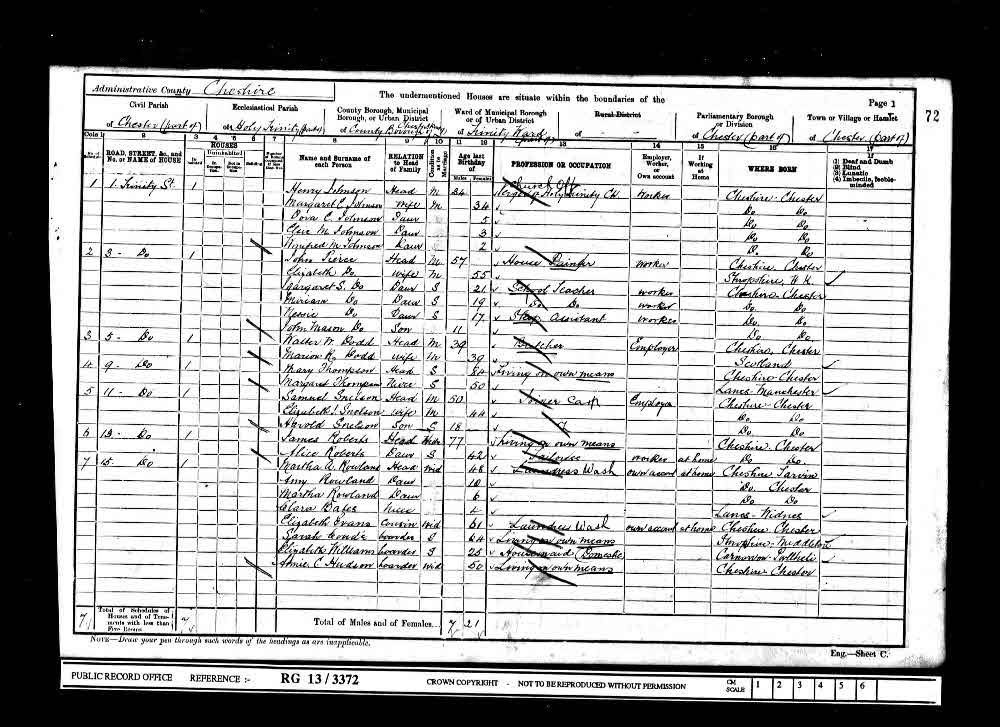 Administrative County Cheshire
The undermentioned Houses are situate within the boundaries of the
Page 1
72
Civil Parish
of Chester (part of)
Ecclesiastical Parish
of Holy Trinity (part of)
County Borough, Municipal Borough, or Urban District
of County Borough of Chester (part of)
Ward of Municipal Borough or of Urban District
of Trinity Ward (part of)
Rural District
of
Parliamentary Borough or Division
of Chester (part of)
Town or Village or Hamlet
of Chester (part of)
Cols 1 2 3 4 5 6 7 8 9 10 11 12 13 14 15 16 17
No. of Schedule
ROAD, STREET, &c., and No. or NAME of HOUSE
HOUSES
Inhabited
Uninhabited
In Occupation
Not in Occupation
Building
Name and Surname of each Person
RELATION to Head of Family
Condition as to Marriage
Age last Birthday of
Males Females
PROFESSION OR OCCUPATION
Employer, Worker, or Own account
If Working at Home
WHERE BORN
(1) Deaf and Dumb
(2) Blind
(3) Lunatic
(4) Imbecile, feeble-minded
1 1 Trinity St. 1 Henry Johnson Head M 34 Church Off Verger Holy Trinity Ch. Worker Cheshire Chester
Margaret C. Johnson Wife M 34 Do Do
Dora C. Johnson Daur 5 Do Do
Elsie M. Johnson Daur 3 Do Do
Winifred M. Johnson Daur 2 Do Do
2 3 - Do 1 John Pierce Head M 57 House Painter Worker Cheshire Chester
Elizabeth Do Wife M 55 Shropshire, N. K.
Margaret S. Do Daur S 21 School Teacher Worker Cheshire Chester
Miriam Do Daur S 19 Do Do Worker Do. Do
Nessie Do Daur S 17 Shop Assistant Worker Do. Do
John Mason Do Son 11 Do Do
3 5 - Do 1 Walter W. Dodd Head M 39 Butcher Employer Cheshire, Chester
Marion R. Dodd Wife M 39 Scotland
4 9 - Do 1 Mary Thompson Head S 84 Living on own means Cheshire Chester
Margaret Thompson Niece S 50 Lancs Manchester
5 11 - Do 1 Samuel Snelson Head M 50 Joiner Employer Cheshire Chester
Elizabeth J. Snelson Wife M 44 Do. Do
Harold Snelson Son S 18 Do Do
6 13 - Do 1 James Roberts Head Wdr 77 Living on own means Cheshire Chester
Alice Roberts Daur S 42 Tailoress Worker at home Do Do
7 15 Do 1 Martha A. Rowland Head Wid 48 Laundress Wash own account at home Cheshire Tarvin
Amy Rowland Daur 10 Do. Chester
Martha Rowland Daur 6 Do Do
Clara Bates Niece 4 Lancs - Widnes
Elizabeth Evans Cousin Wid 61 Laundress Wash own account at home Cheshire Chester
Sarah boarder S 64 Living on own means Shropshire
Elizabeth Williams boarder S 25 Housemaid (Domestic) Carnarvon Pwllheli
Annie C. Hudson boarder Wid 50 Living on own means Cheshire Chester
7 Total of Schedules of Houses and of Tenements with less than Five Rooms 7
Total of Males and of Females... 7 21
NOTE—Draw your pen through such words of the headings as are inapplicable.
Eng.—Sheet C.
PUBLIC RECORD OFFICE REFERENCE :- RG 13/3372 CROWN COPYRIGHT - NOT TO BE REPRODUCED WITHOUT PERMISSION CM SCALE 1 2 3 4 5 6